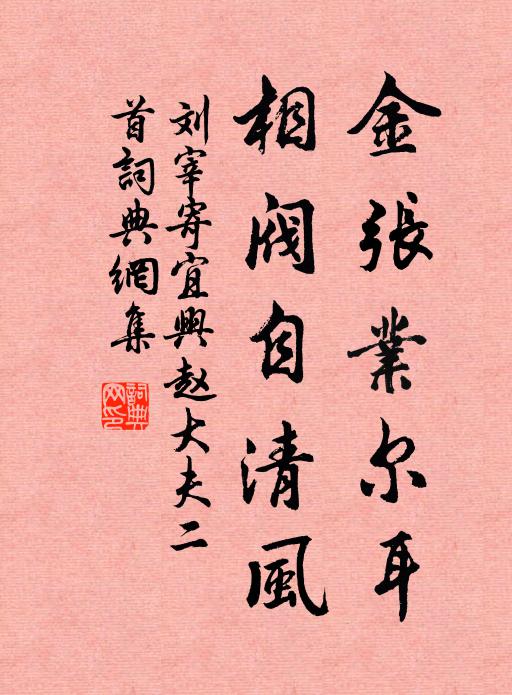 金張業尔耳
相阀自清風
刘宰寄宜興赵大夫二
首詞典網集
詞典
网印